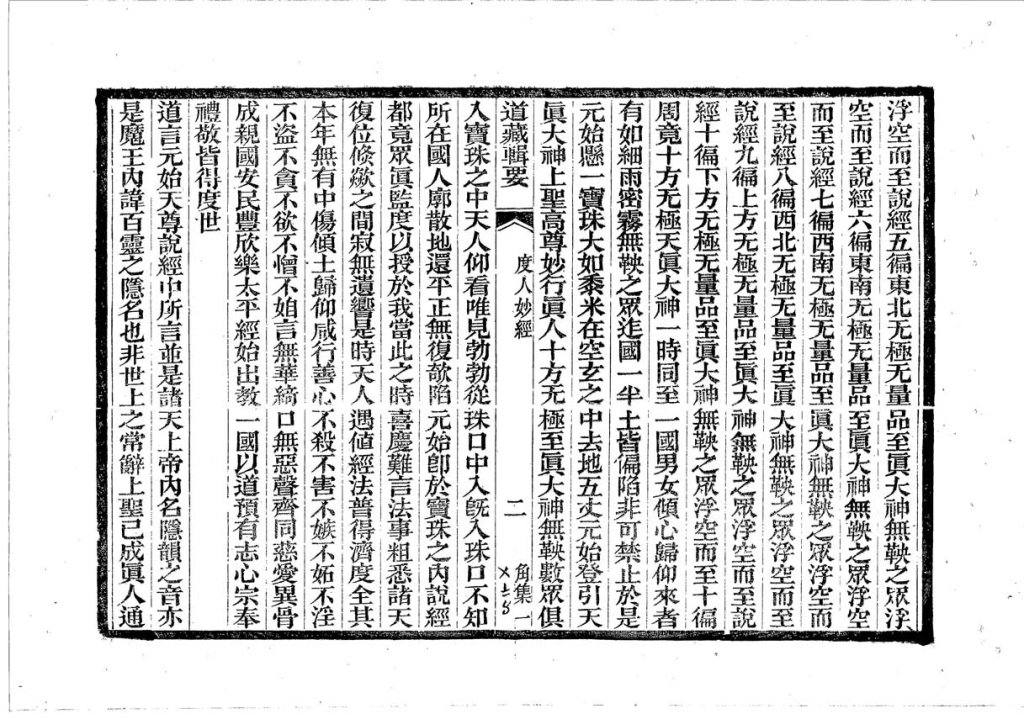 浮空而至說經五徧東北无極无量品至眞大神無鞅之眾浮
空而至說經六徧東南无極无量品至眞大神無鞅之眾浮空
而至說經七徧西南无極无量品至眞大神無鞅之眾浮空而
至說經八徧西北无極无量品至眞大神無鞅之眾浮空而至
說經九徧上方无極无量品至眞大神無鞅之眾浮空而至說
經十徧下方无極无量品至眞大神無鞅之眾浮空而至十徧
周竟十方无極天眞大神一時同至一國男女傾心歸仰來者
有如細雨密霧無鞅之眾迮國一半土皆偏陷非可禁止於是
元始懸一寶珠大如黍米在空玄之中去地五丈元始登引天
眞大神上聖高尊妙行眞人十方无極至眞大神無鞅數眾俱
道藏輯要
度人妙經
二
角集一
入寶珠之中天人仰看唯見勃勃從珠口中入旣入珠口不知
所在國人廓散地還平正無復欹陷元始卽於寶珠之內說經
都竟眾眞監度以授於我當此之時喜慶難言法事粗悉諸天
復位倏歘之間寂無遺響是時天人遇值經法普得濟度全其
本年無有中傷傾土歸仰咸行善心不殺不害不嫉不妬不淫
不盜不貪不欲不憎不㛍言無華綺口無惡聲齊同慈愛異骨
成親國安民豐欣樂太平經始出教一國以道預有志心宗奉
禮敬皆得度世
道言元始天尊說經中所言並是諸天上帝內名隱韻之音亦
是魔王內諱百靈之隱名也非世上之常辭上聖已成眞人通